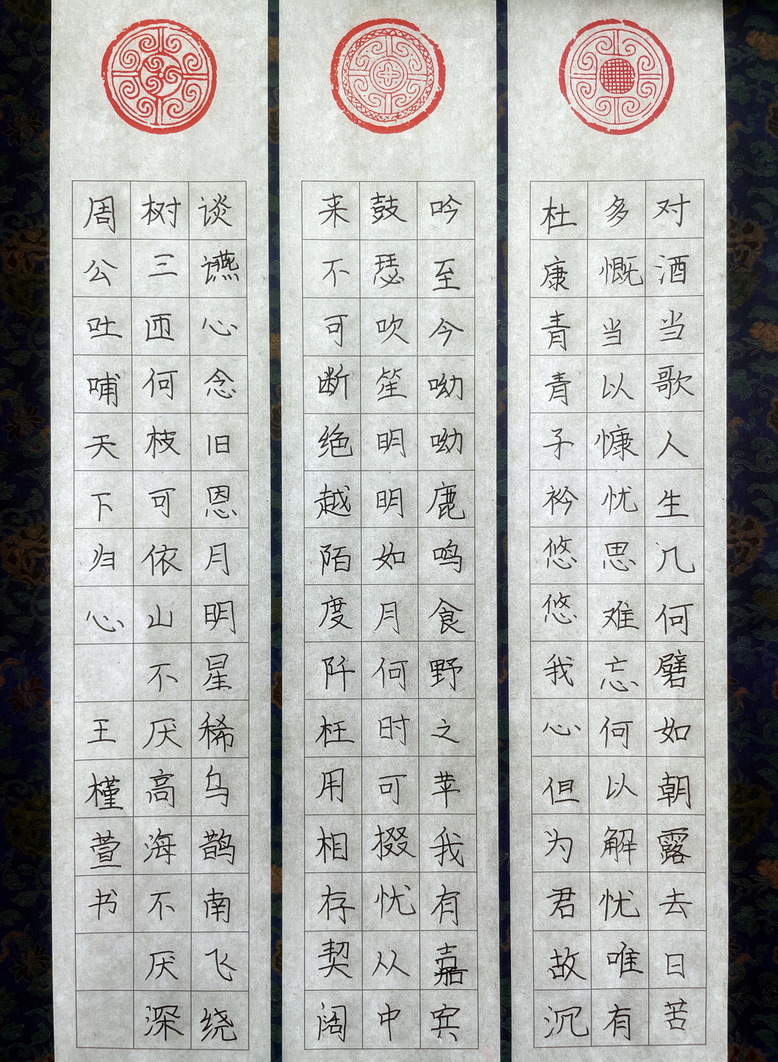 对酒当歌人生几何譬如朝露去日苦
多慨当以慷忧思难忘何以解忧唯有
杜康青青子衿悠悠我心但为君故沉
吟至今呦呦鹿鸣食野之苹我有嘉宾
鼓瑟吹笙明明如月何时可掇忧从中
来不可断绝越陌度阡枉用相存契阔
谈讌心念旧恩月明星稀乌鹊南飞绕
树三匝何枝可依山不厌高海不厌深
周公吐哺天下归心 王槿萱书